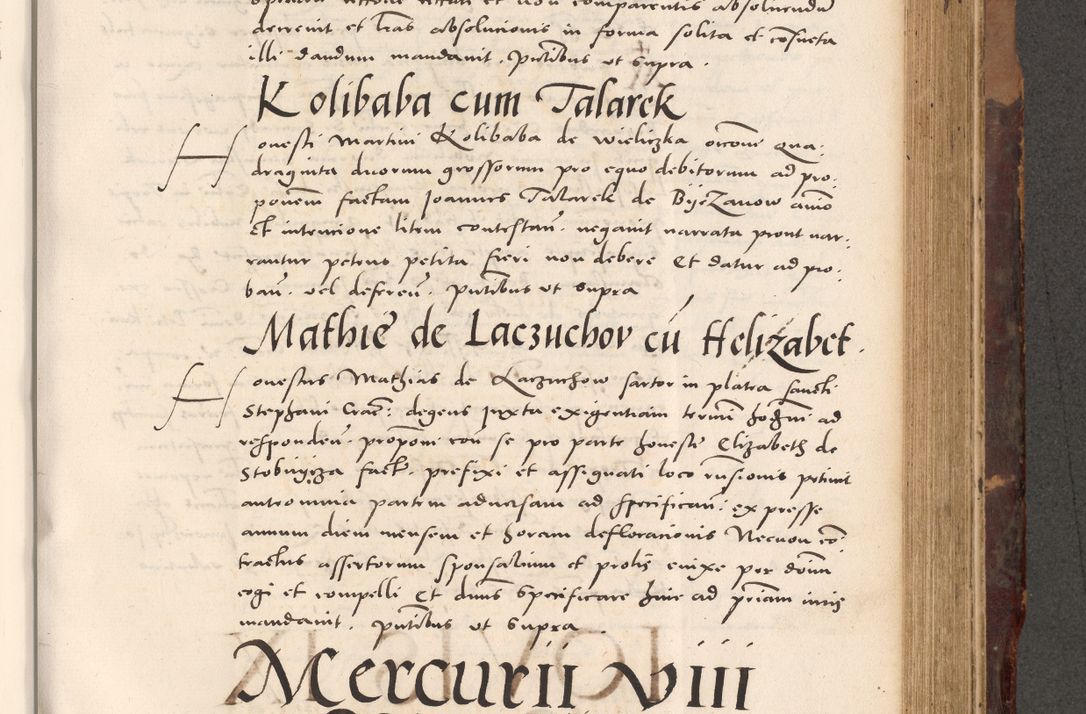 decrevit et lras absolucionis in forma solita et cosueta
illi dandum mandavit. putibus ut supra.
Kolibaba cum Talarek
Honesti Martini Kolibaba de Wieliczka oicom qua:
draginta duorum grossorum pro equo debitorum ad pro:
ponem factam Joannes Talarek de Byezanow animo
et intencione litem contestan. negavit narrata prout nar:
rantur petens petita fieri non debere Et datur ad pro:
ban. vel deferen. putibus ut supra
Mathie de Laczuchov cu Helizabet.
Honestus Mathias de Laczuchow sartor in platea sancti
Stephani Crac: degens juxta exigentiam termi hodni ad
responden. proponi con se pro parte honeste Elizabeth de
Stobnycza fact. prefixi et assegnati loco rusionis petiint
ante omnia partem adversam ad specifican: expresse
annum diem mensem et horam deflorationis Necnon co:
tractus assertorum sponsalium et prolis enixe per domi
cogi et compelli Et dnus specificare hinc ad priam iuris
mandavit. putibus ut supra
Mercurii viii